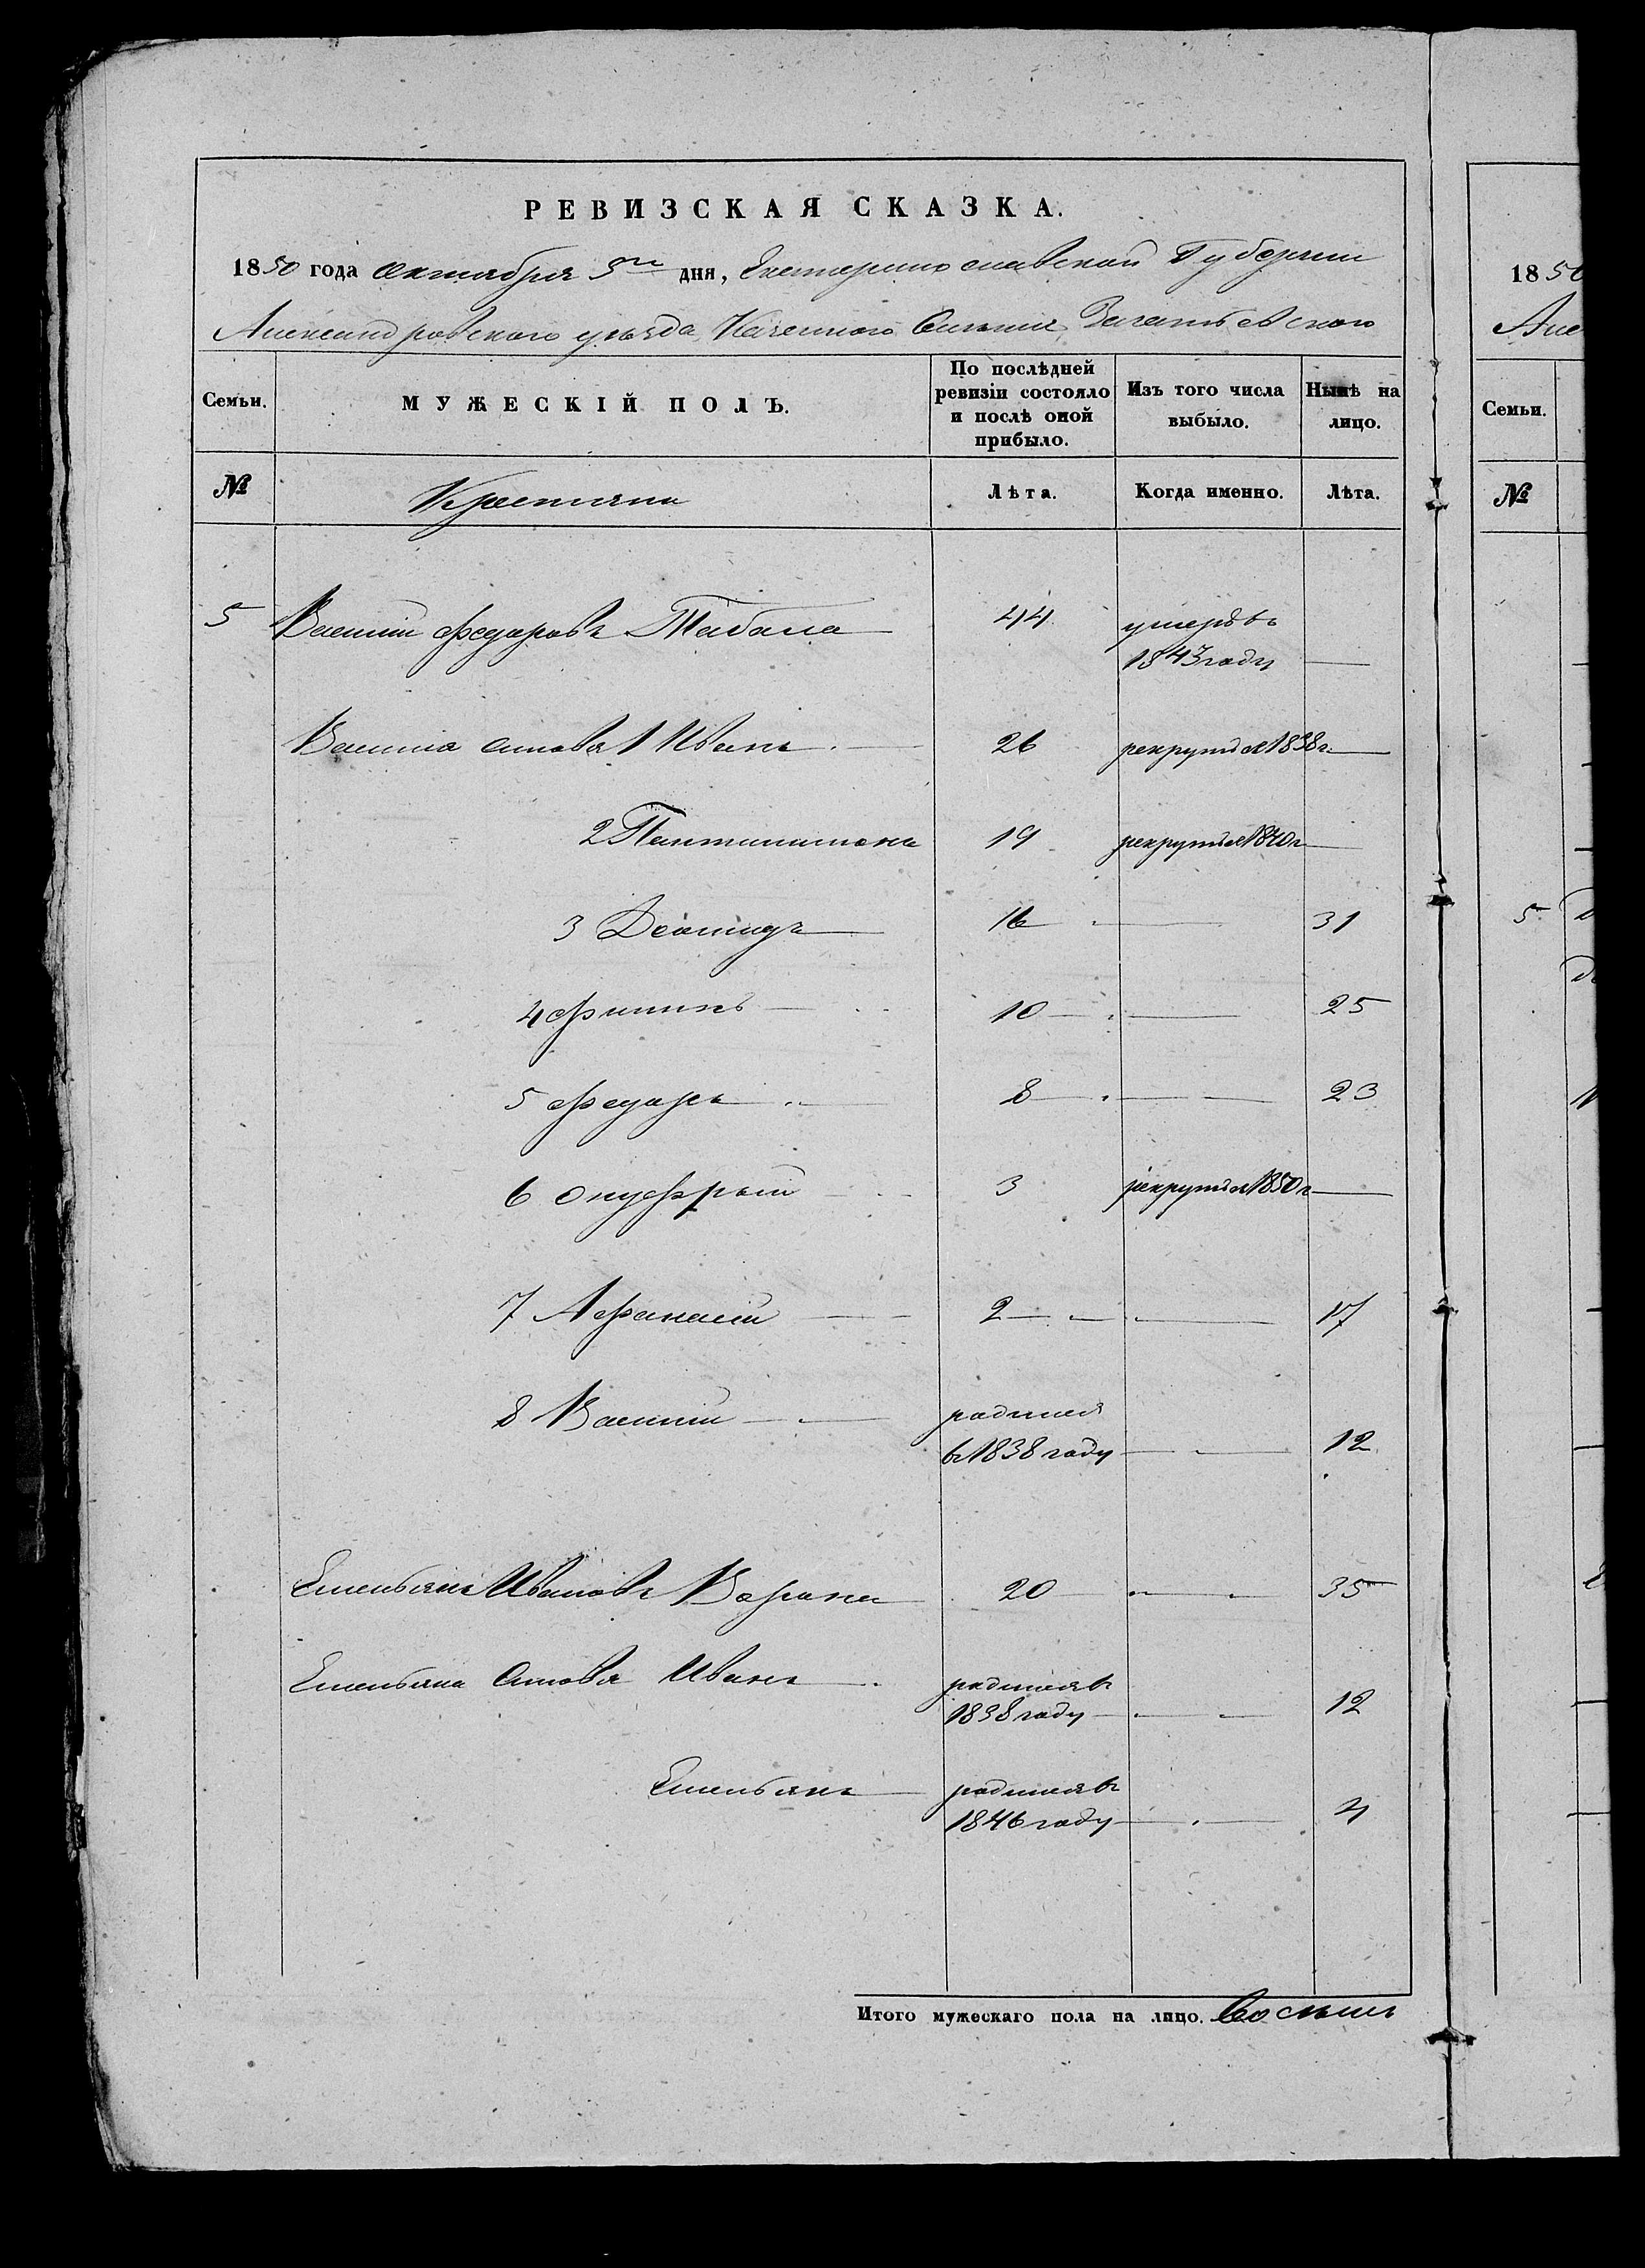 РЕВИЗСКАЯ СКАЗКА.
1850 года октября 5го дня, Екатеринославской Губернии
Александровского уѣзда, Казенного Селения, Зачатьевского
Семьи. МУЖЕСКІЙ ПОЛЪ. По послѣдней ревизіи состояло и послѣ оной прибыло. Изъ того числа выбыло. Нынѣ на лицо.
№ Крестьяни Лѣта. Когда именно. Лѣта.
5 Василий Федоровъ 44 умеръ въ
1843 году —
Василия сыновья 1 Иванъ 26 рекрутъ съ 1838 г. —
2 Пантилимонъ 19 рекрутъ съ 1840 г —
3 Леонидъ 16 — 31
4 Филипъ 10 — 25
5 Федоръ 8 — 23
6 Онуфрий 3 рекрутъ съ 1850 г —
7 Афанасий 2 — 17
8 Василий — родился
въ 1838 году — 12
Емельянъ Ивановъ Ворона 20 — 35
Емельяна Сыновья Иванъ родился въ
1838 году — 12
Емельянъ родился въ
1846 году — 4
Итого мужескаго пола на лицо. Восемь
1850
Але
Семьи.
№
5